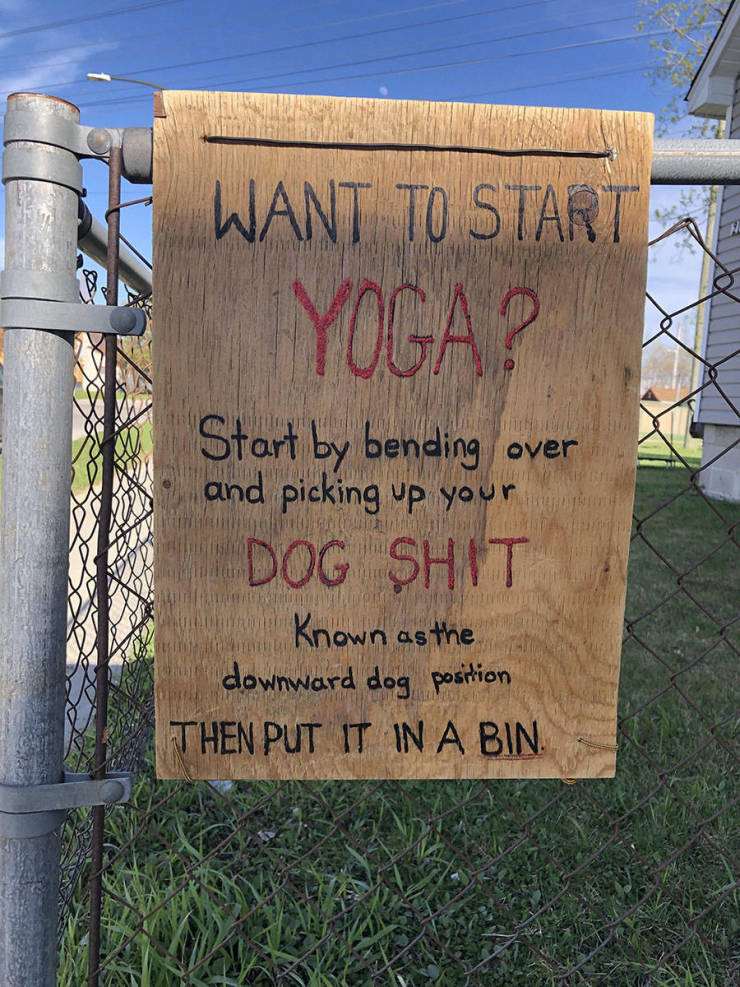 WANT TO START
YOGA?
Start by bending over
and picking up your
DOG SHIT
Known as the
downward dog position
THEN PUT IT IN A BIN.